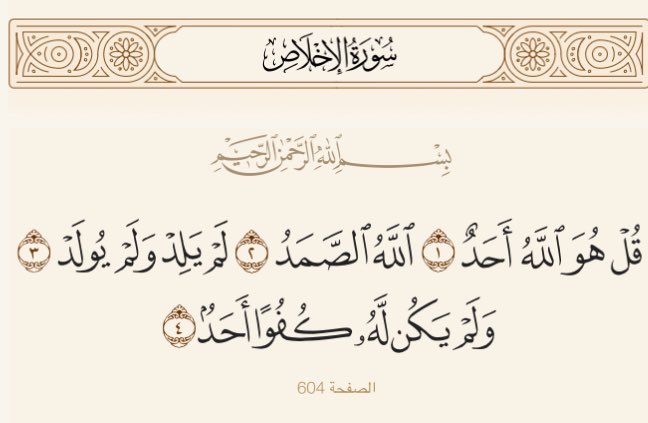 سُورَةُ الإِخْلَاصِ
بِسْمِ ٱللَّهِ ٱلرَّحْمَٰنِ ٱلرَّحِيمِ
قُلْ هُوَ ٱللَّهُ أَحَدٌ ١ ٱللَّهُ ٱلصَّمَدُ ٢ لَمْ يَلِدْ وَلَمْ يُولَدْ ٣
وَلَمْ يَكُن لَّهُۥ كُفُوًا أَحَدُۢ ٤
الصفحة 604